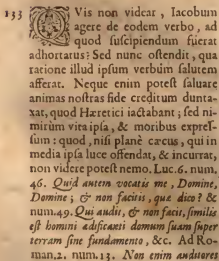 133 QVis non videat, Iacobum
agere de eodem verbo, ad
quod suscipiendum fuerat
adhortatus? Sed nunc ostendit, qua
ratione illud ipsum verbũ salutem
afferat. Neque enim potest saluare
animas nostras fide creditum dunta-
xat, quod Hæretici iactabant; sed ni-
mirũm vita ipsa, & moribus expres-
sum: quod, nisi planè cæcus, qui in
media ipsa luce offendat, & incurrat,
non videre potest nemo. Luc. 6. num.
46. Quid autem vocatis me, Domine,
Domine; & non facitis, quæ dico? &
num. 49. Qui audit, & non facit, similis
est homini ædificanti domum suam super
terram sine fundamento, &c. Ad Ro-
man. 2. num. 13. Non enim auditores